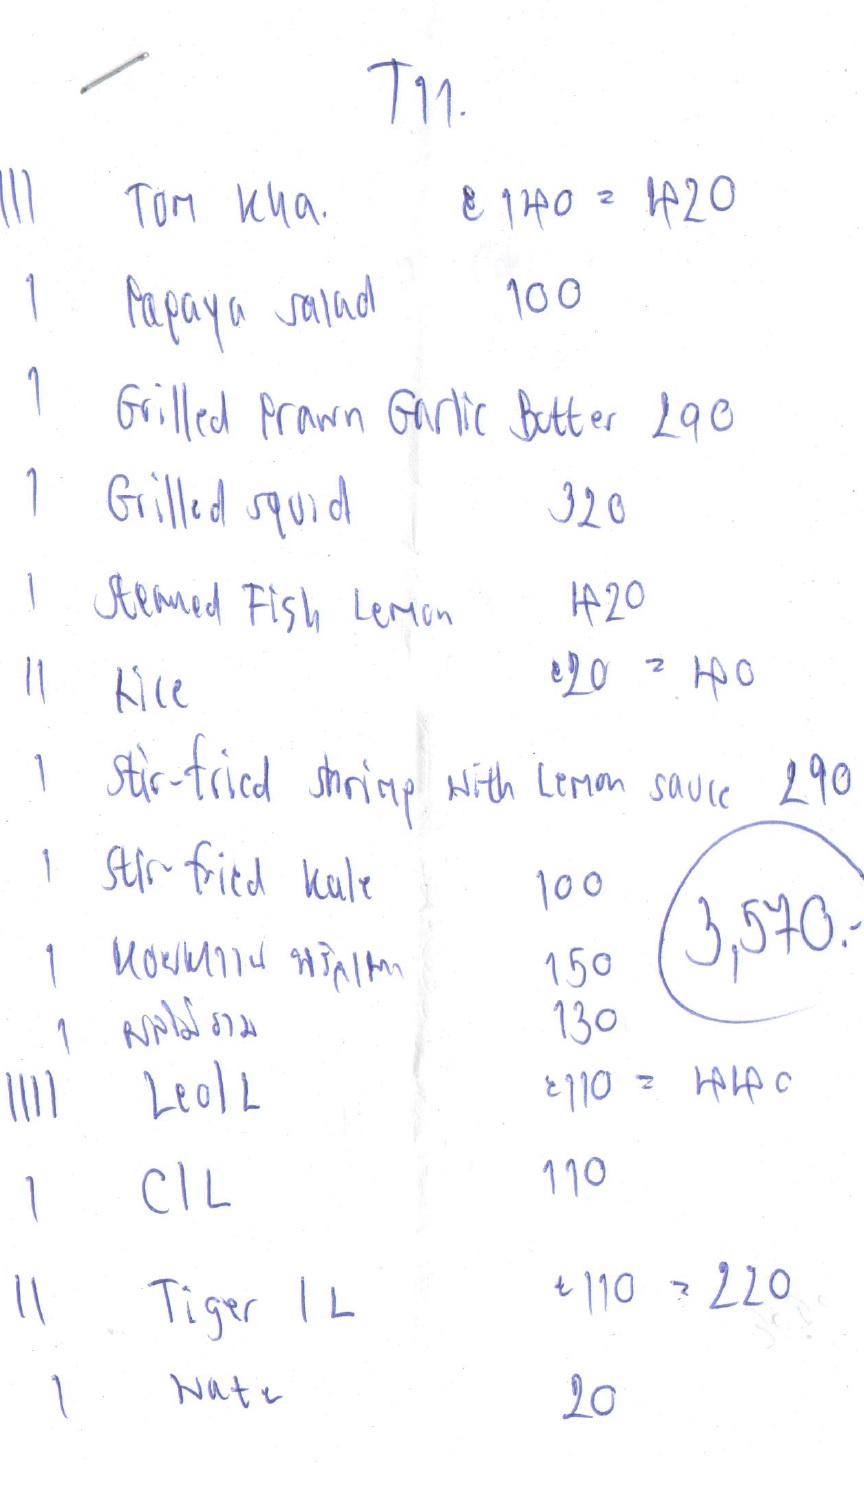 T11.
||| Tom Kha. @ 140 = 420
1 Papaya salad 100
1 Grilled Prawn Garlic Butter 290
1 Grilled squid 320
1 Steamed Fish Lemon 420
|| Rice @20 = 40
1 Stir-fried shrimp with Lemon sauce 290
1 Stir-fried kale 100
3,570.-
1 หอยหวาน 150
1 ผลไม้รวม 130
|||| Leo/L @110 = 440
1 C/L 110
|| Tiger /L @110 = 220
1 Wate 20